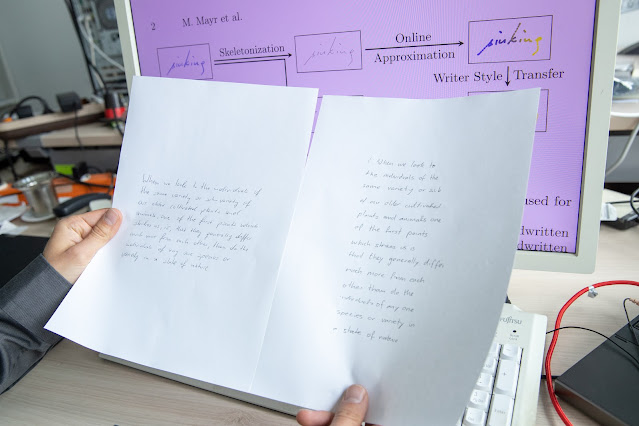 2 M. Mayr et al.
pinking
Skeletonization
pinking
Online
Approximation
pinking
Writer Style Transfer
used for
dwritten
dwritten
When we look to the individuals of
the same variety or sub-variety of
our older cultivated plants and
animals, one of the first points which
strikes us is, that they generally differ
more from each other than do the
individuals of any one species or
variety in a state of nature
1. When we look to
the individuals of the
same variety or sub
of our older cultivated
plants and animals one
of the first points
which strikes us is
that they generally differ
much more from each
other than do the
individuals of any one
species or variety in
a state of nature
FUJITSU